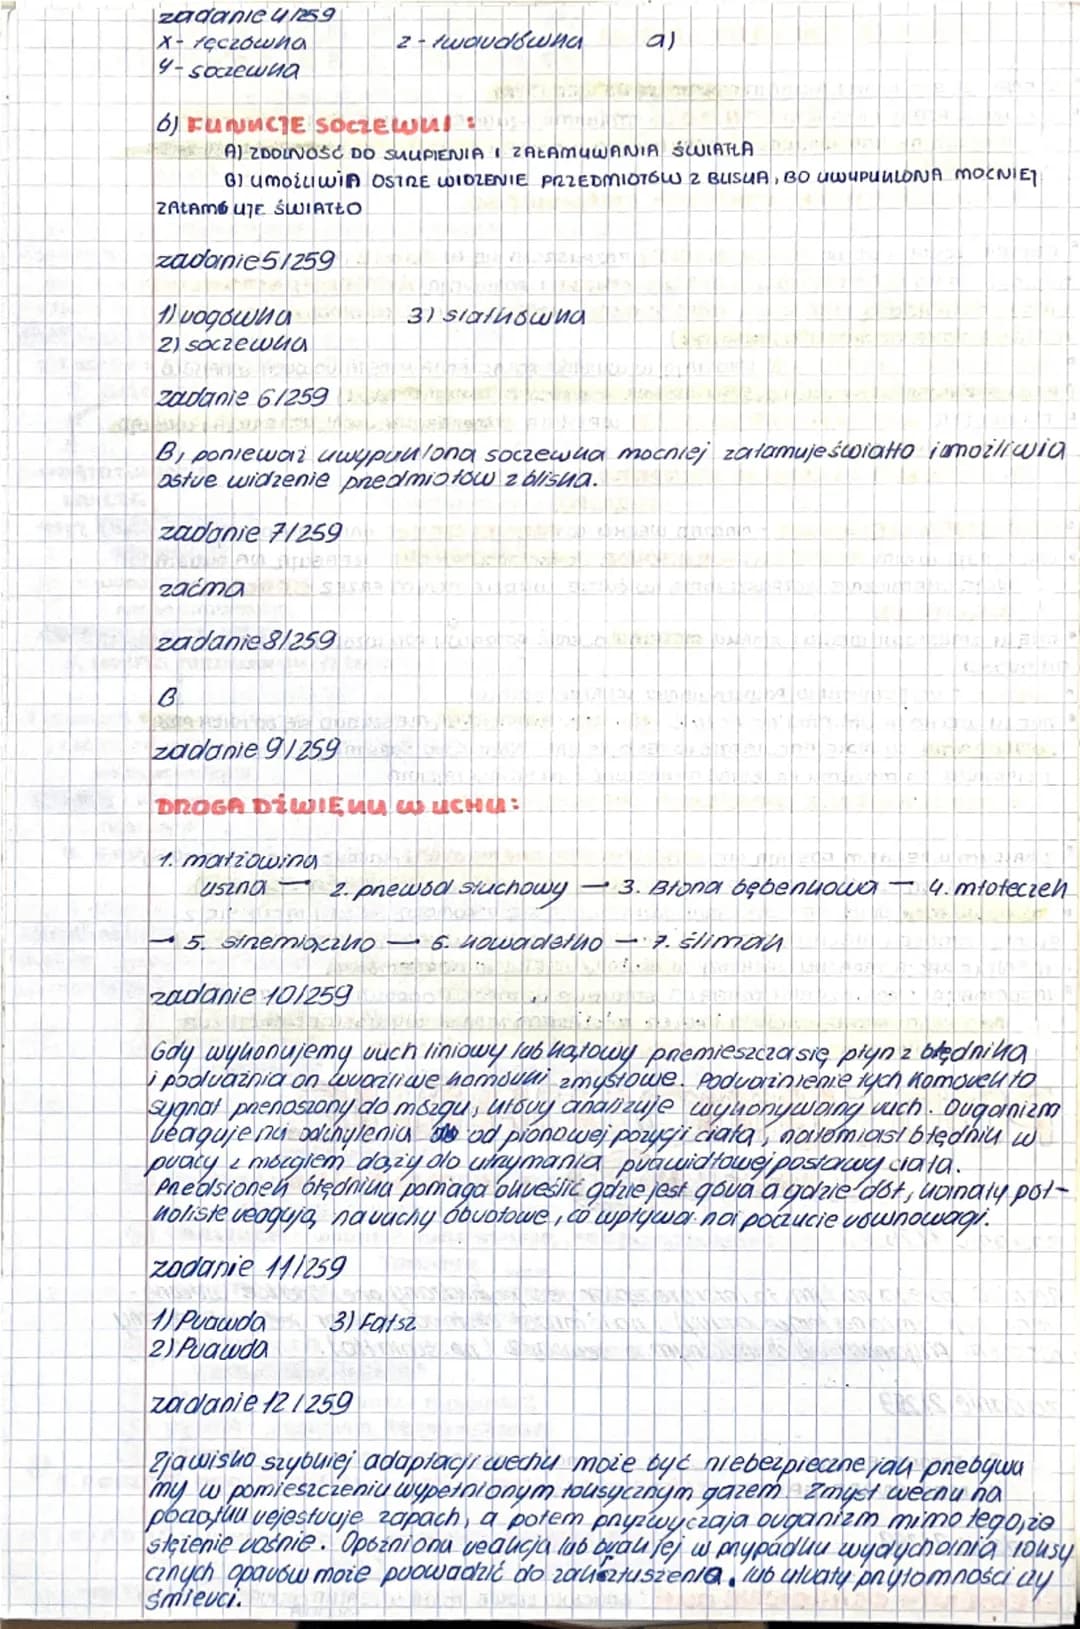 zadanie 4/259
X- tęczówka   z - twardówka   a)
Y- soczewka
b) FUNKCJE SOCZEWKI :
A) ZDOLNOŚĆ DO SKUPIENIA I ZAŁAMYWANIA ŚWIATŁA
B) UMOŻLIWIA OSTRE WIDZENIE PRZEDMIOTÓW Z BLISKA, BO UWYPUKLONA MOCNIEJ
ZAŁAMUJE ŚWIATŁO
zadanie 5/259
1) rogówka   3) siatkówka
2) soczewka
zadanie 6/259
B, ponieważ uwypuklona soczewka mocniej załamuje światło i umożliwia
ostre widzenie przedmiotów z bliska.
zadanie 7/259
zaćma
zadanie 8/259
B
zadanie 9/259
DROGA DŹWIĘKU W UCHU:
1. małżowina
uszna → 2. przewód słuchowy → 3. Błona bębenkowa → 4. młoteczek
→ 5. strzemiączko → 6. kowadełko → 7. ślimak
zadanie 10/259
Gdy wykonujemy ruch liniowy lub kątowy przemieszcza się płyn z błędnika
i podrażnia on wrażliwe komórki zmysłowe. Podrażnienie tych komórek to
sygnał przenoszony do mózgu, który analizuje wykonywany ruch. Organizm
reaguje na odchylenia od pionowej pozycji ciała, natomiast błędnik w
pracy z mózgiem dąży do utrzymania prawidłowej postawy ciała.
Przedsionek błędnika pomaga określić gdzie jest góra a gdzie dół, kanały pół-
koliste reagują na ruchy obrotowe, co wpływa na poczucie równowagi.
zadanie 11/259
1) Prawda   3) Fałsz
2) Prawda
zadanie 12/259
Zjawisko szybkiej adaptacji węchu może być niebezpieczne jak przebywa
my w pomieszczeniu wypełnionym toksycznym gazem. Zmysł węchu na
początku rejestruje zapach, a potem przyzwyczaja organizm mimo tego, że
stężenie rośnie. Opóźniona reakcja lub brak jej w przypadku wdychania toksy
cznych oparów może prowadzić do zakrztuszenia, lub utraty przytomności czy
śmierci.